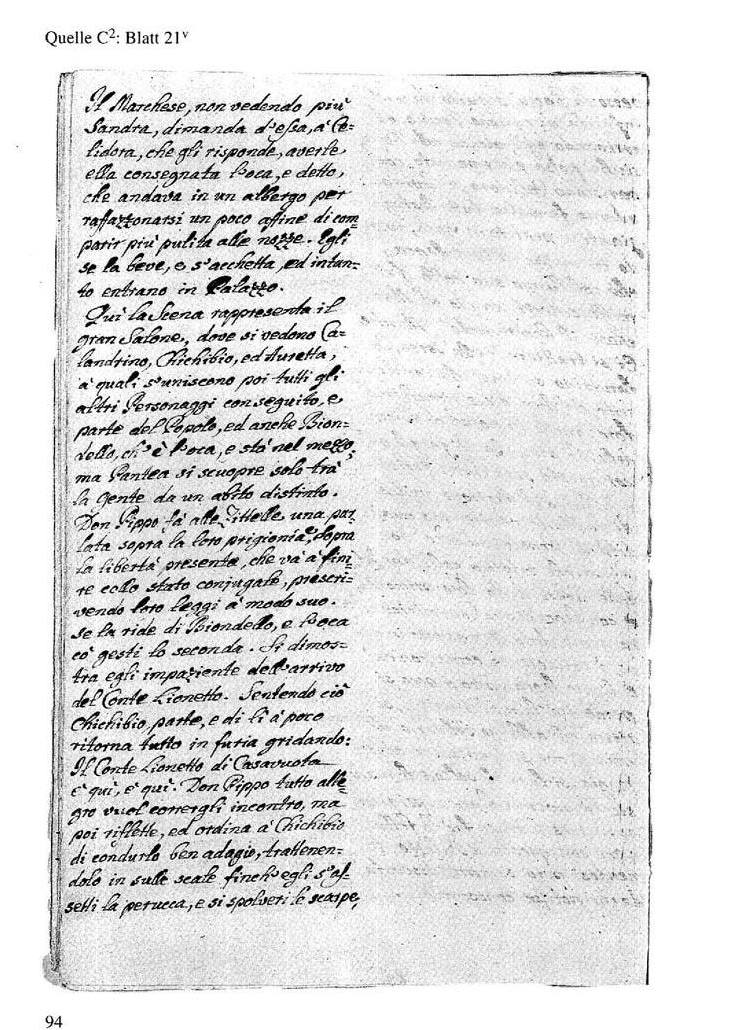 Quelle C²: Blatt 21ᵛ
Il Marchese, non vedendo più
Sandra, dimanda d'essa, à Ce=
lidora, che gli risponde, averle
ella consegnata l'oca, e detto,
che andava in un albergo per
raffazzonarsi un poco affine di com
parir più pulita alle nozze. Egli
se la beve, e s'acchetta, ed intan=
to entrano in Palazzo.
Quì la Scena rappresenta il
gran Salone, dove si vedono Ca=
landrino, Chichibio, ed Auretta,
a' quali s'uniscono poi tutti gli
altri Personaggi con seguito, e
parte del Popolo, ed anche Bion=
dello, ch'è l'oca, e stà nel mezzo,
ma Pantea si scuopre solo trà
la gente da un abito distinto.
Don Pippo fà alle Zittelle una par=
lata sopra la loro prigionia, sopra
la libertà presente, che và à fini=
re collo stato conjugale, prescri=
vendo loro leggi à modo suo.
se la ride di Biondello, e l'oca
co' gesti lo seconda. Si dimos=
tra egli impaziente dell'arrivo
del Conte Lionetto. Sentendo ciò
Chichibio, parte, e di lì à poco
ritorna tutto in furia gridando:
Il Conte Lionetto di Casavuota
è quì, è quì. Don Pippo tutto alle=
gro vuol corrergli incontro, ma
poi riflette, ed ordina à Chichibio
di condurlo ben adagio, trattenen=
dolo in sulle scale finch'egli s'as=
setti la perucca, e si spolveri le scarpe,
94